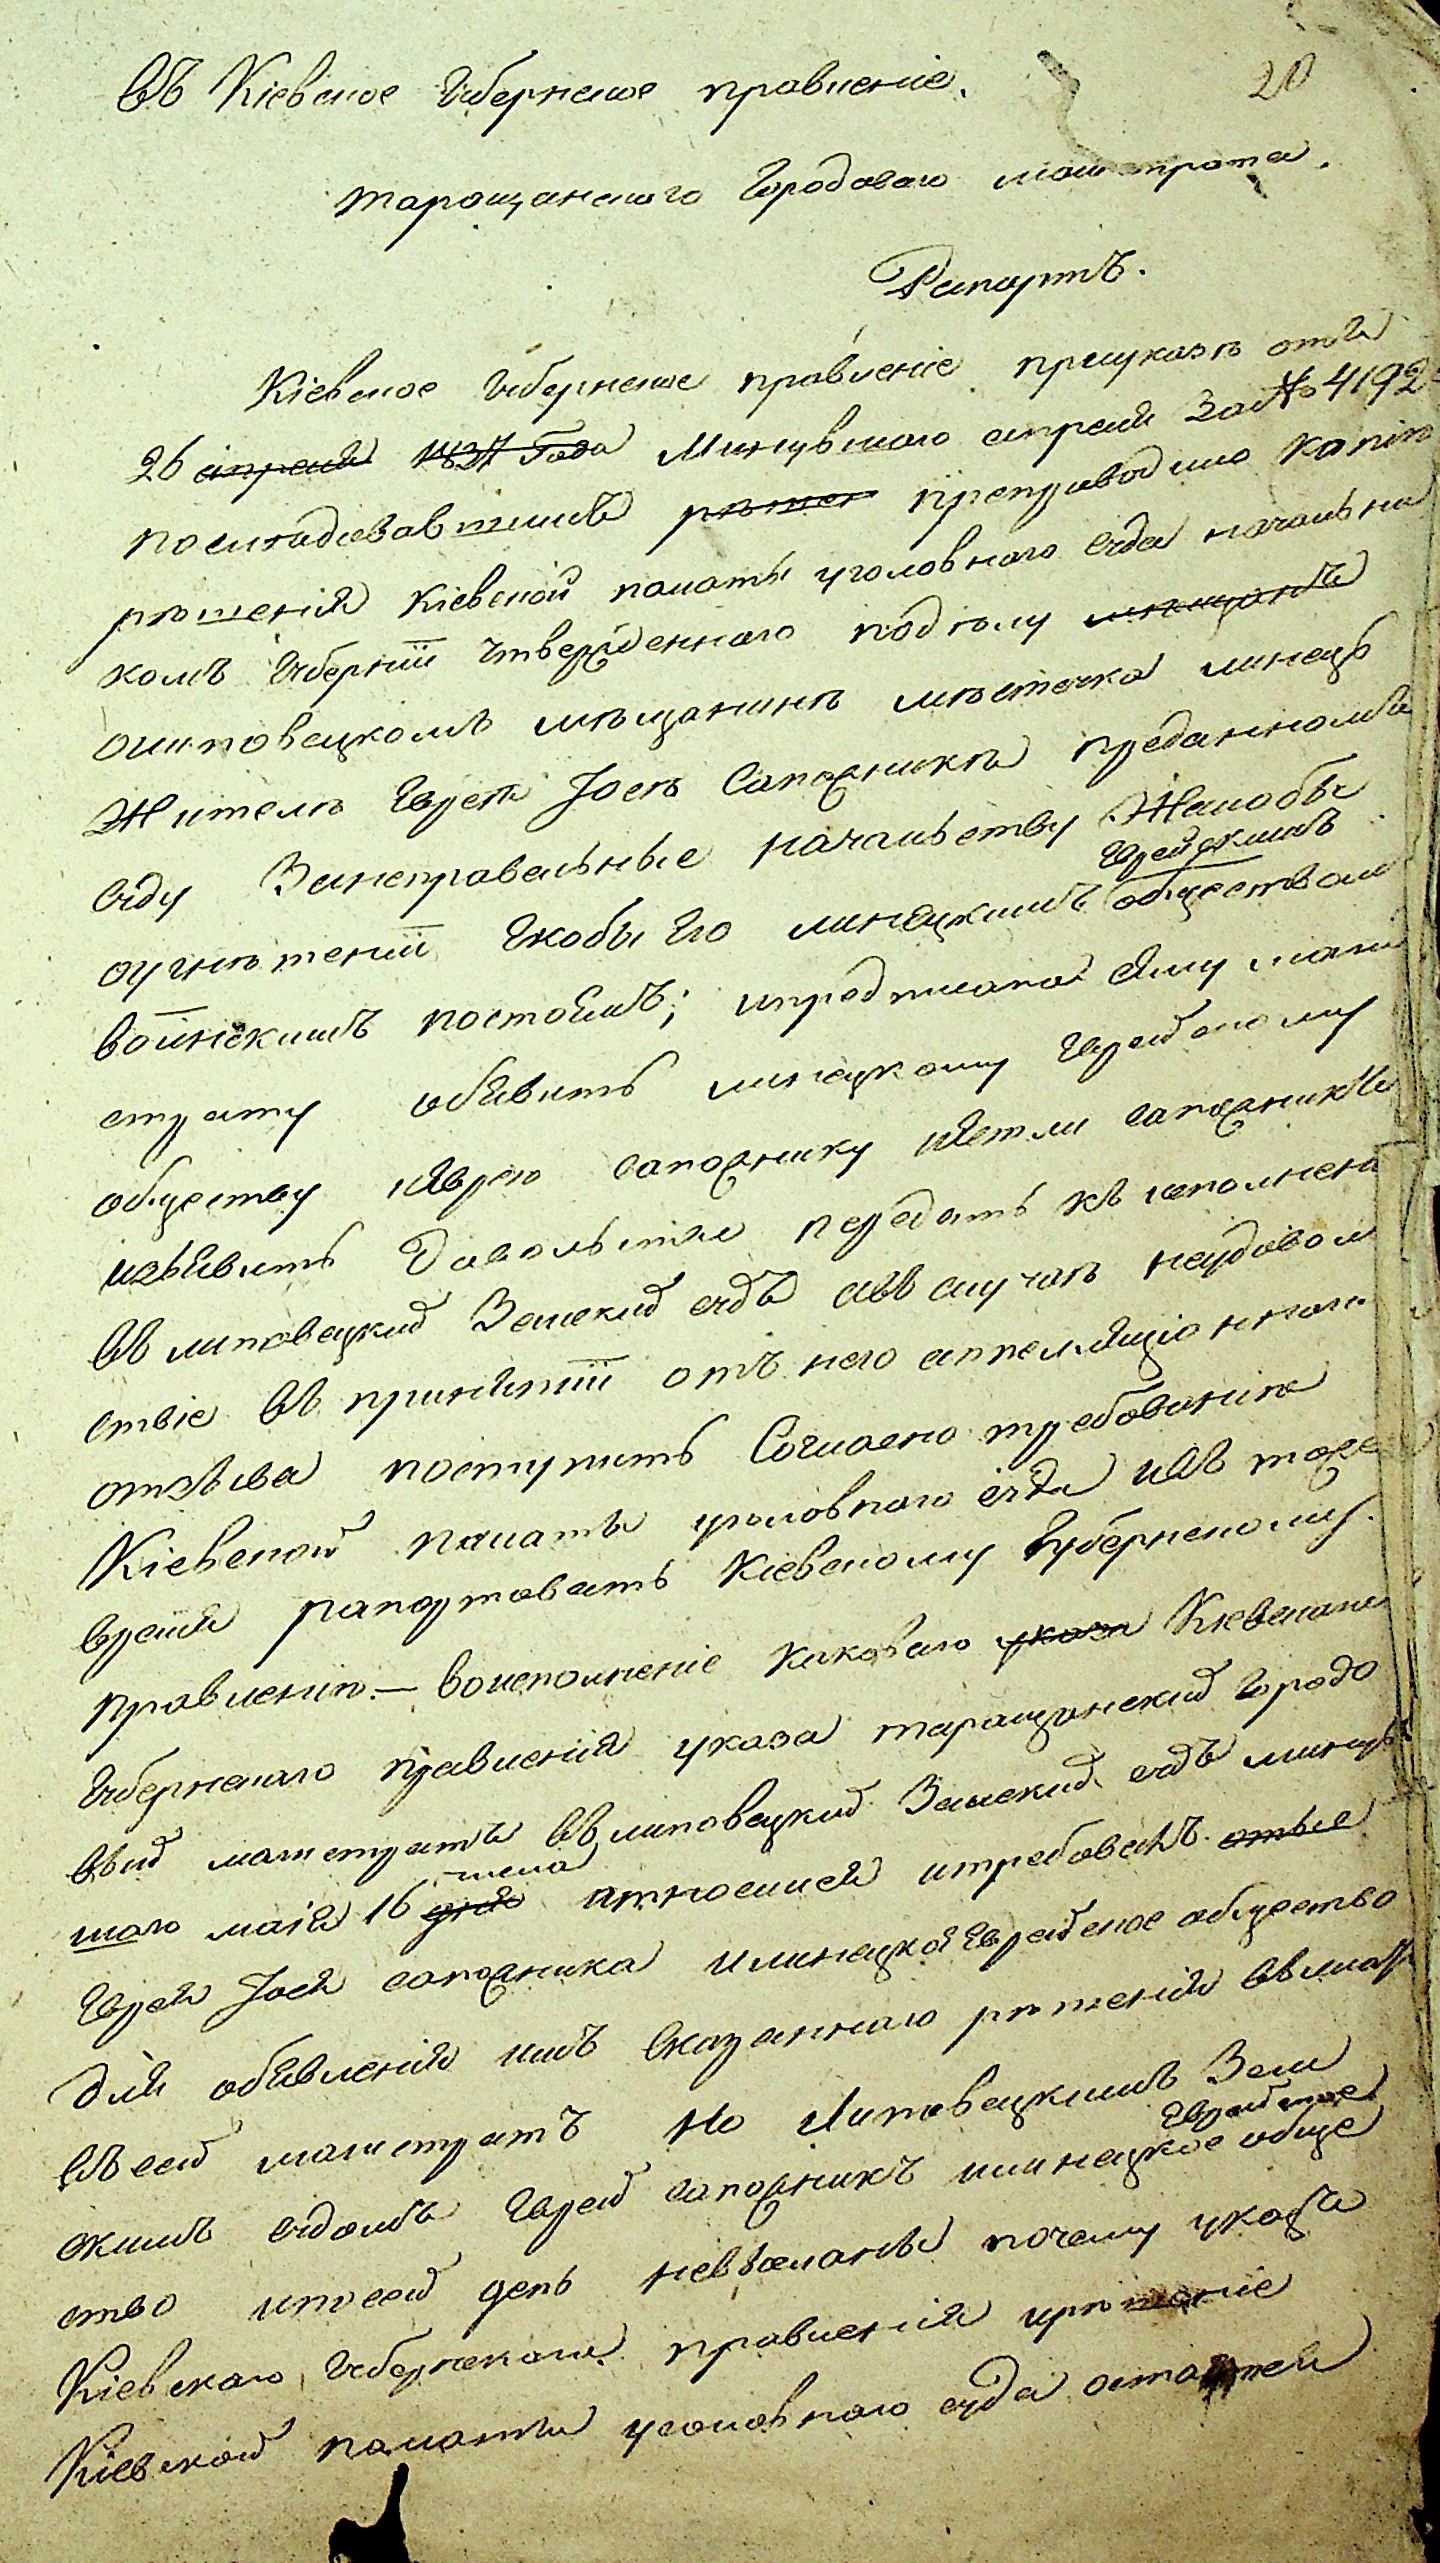 въ Кіевское Губернское правленіе.
20
таращанского Городоваго магистрата.
Рапортъ.
Кіевское Губернское правленіе приуказѣ отъ
26 апреля 1831 Года Минувшаго апреля За № 4192
последовавшимъ решен препроводило копію
рѣшенія Кіевской палаты уголовнаго суда начальни
комъ Губерніи утвержденнаго поделу мещанъ
олиповецкомъ мѣщанинѣ мѣстечка линецъ
Жителѣ Евреѣ Іосѣ Сапожникѣ преданномъ
суду Занеправельные начальству Жалобы
Еврейскимъ
оугнѣтеніи якобы Его линецкимъ обществом
воинскимъ постоемъ; ипредписала Ему маги
страту объявить линецкому Еврейскому
обществу иЕврею сапожнику иЕстли сапожникъ
изъявитъ Давольствие передать къ исполнен
въ липовецкий Земский судъ авъ случаѣ неудовол
ствіе въ принятіи отъ него аппелляціоннаго
отзыва поступить Согласно требованію
Кіевской палаты уголовнаго суда ивъ тоже
время рапортовать Кіевскому Губернскому
правленію.— воисполненіе каковаго указа Кіевскаго
Губернскаго правленія указа таращанский Городо
вый магистратъ въ липовецкий Земский судъ минув
числа
шаго маія 16 дня относился итребовалъ отые
Еврея Іося сапожника илинецкое Еврейское общество
для объявленія имъ сказаннаго рѣшенія
въ сей магистратъ Но Липовецкимъ Зем
Еврейское
скимъ судомъ Еврей сапожникъ илинецкое обще
ство ипосей день невысланы почему указъ
Кіевскаго Губернскаго правленія ирѣшеніе
Кіевской палаты уголовнаго суда остаются